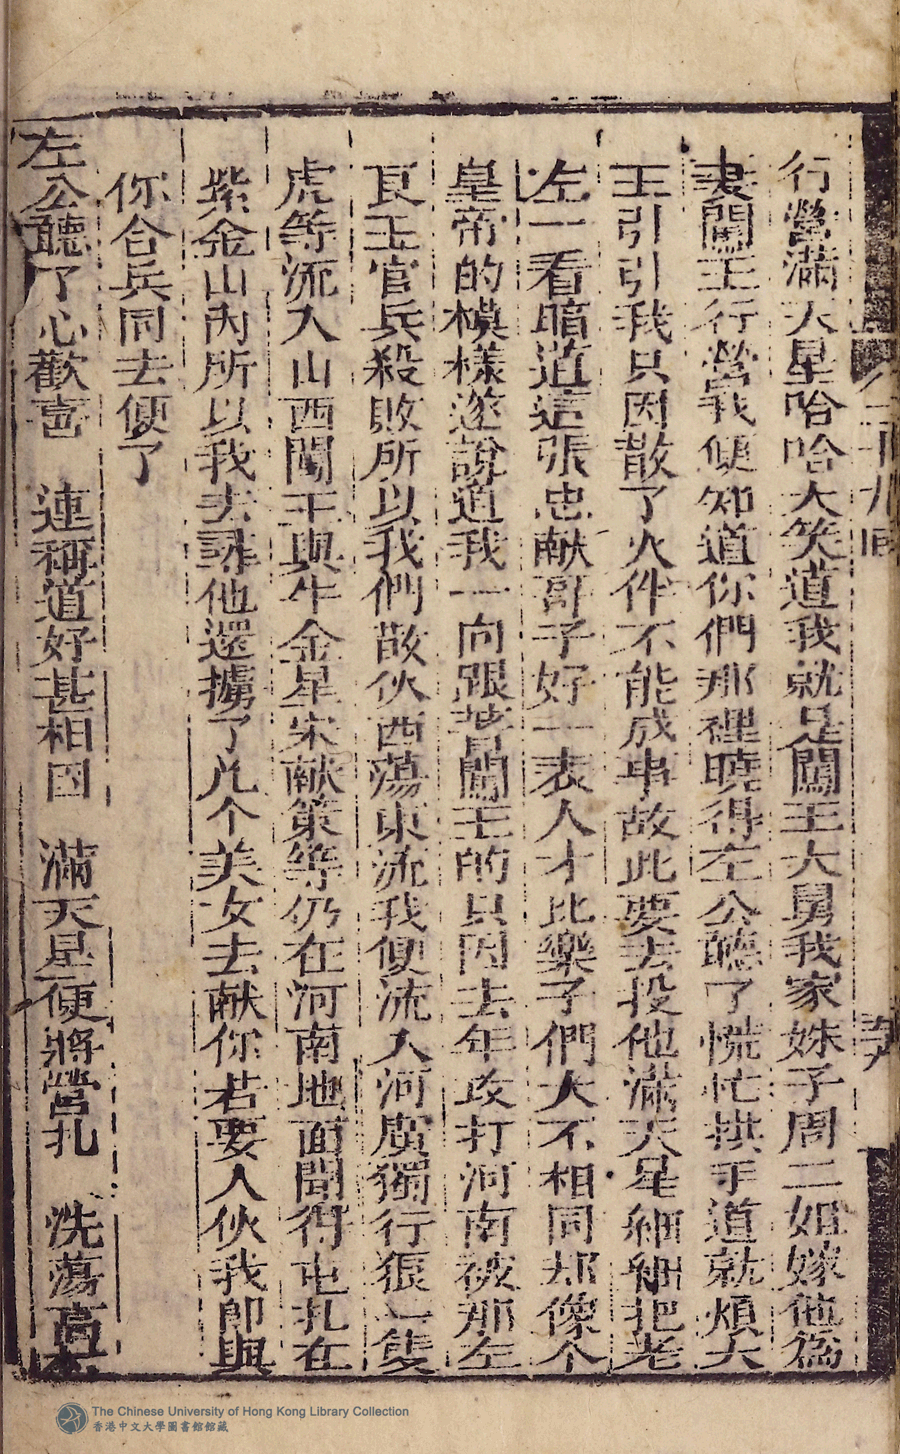 行營滿天星哈哈大笑道我就是闖王大舅我家妹子周二姐嫁他爲
妻闖王行營我便知道你們那裡曉得左公聽了慌忙拱手道就煩大
王引引我只因散了火伴不能成事故此要去投他滿天星細細把老
左一看暗道這張忠献哥子好一表人才比樂子們大不相同却像个
皇帝的模樣遂說道我一向跟著闖王的只因去年攻打河南被那左
良玉官兵殺敗所以我們散伙西蕩東流我便流入河廣獨行狼一隻
虎等流入山西闖王與牛金星宋献策等仍在河南地面聞得屯扎在
紫金山內所以我去尋他還擄了几个美女去献你若要人伙我即與
你合兵同去便了
左公聽了心歡喜　連稱道好甚相因　滿天星便將營扎　洗蕩高
二十九回
The Chinese University of Hong Kong Library Collection
香港中文大學圖書館館藏